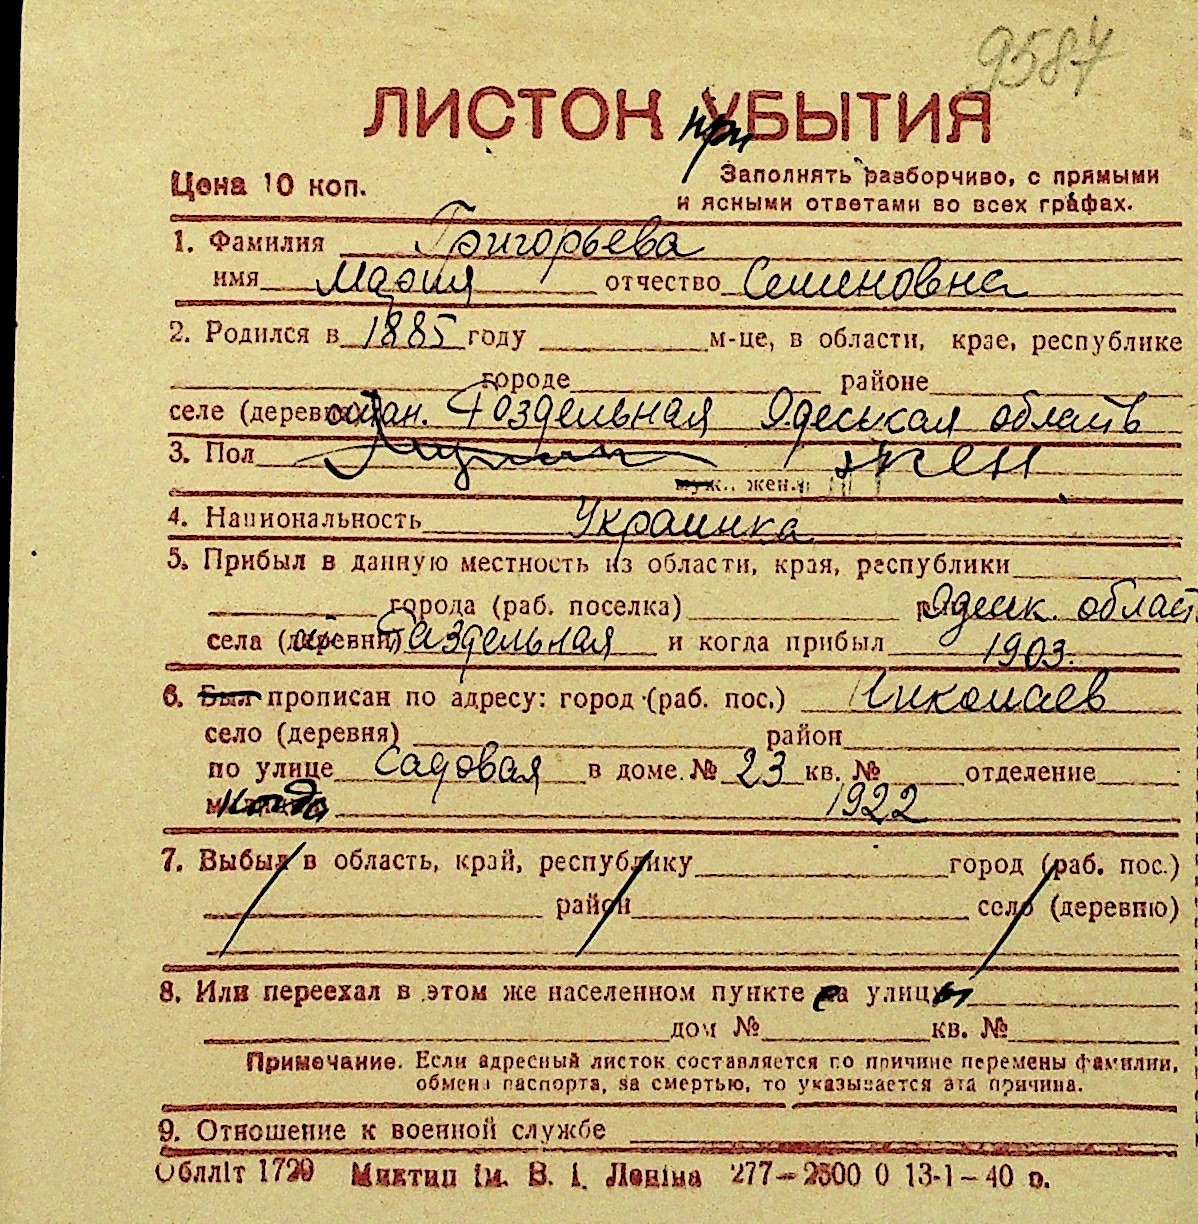 9587
ЛИСТОК при УБЫТИЯ
Цена 10 коп.
Заполнять разборчиво, с прямыми
и ясными ответами во всех графах.
1. Фамилия Григорьева
имя Мария отчество Семеновна
2. Родился в 1885 году м-це, в области, крае, республике
городе районе
селе (деревне) стан. Роздельная Одеськая область
3. Пол Мужчин Жен
муж., жен.
4. Национальность Украинка
5. Прибыл в данную местность из области, края, республики
города (раб. поселка) Одеск. област
села (деревни) Раздельная и когда прибыл 1903.
6. Был прописан по адресу: город (раб. пос.) Николаев
село (деревня) район
по улице Садовая в доме № 23 кв. № отделение
когда 1922
7. Выбыл в область, край, республику город (раб. пос.)
район село (деревню)
8. Или переехал в этом же населенном пункте с улицы
дом № кв. №
Примечание. Если адресный листок составляется по причине перемены фамилии,
обмена паспорта, за смертью, то указывается эта причина.
9. Отношение к военной службе
Обліт 1729 Миктип ім. В. І. Леніна 277—2500 0 13-1—40 р.